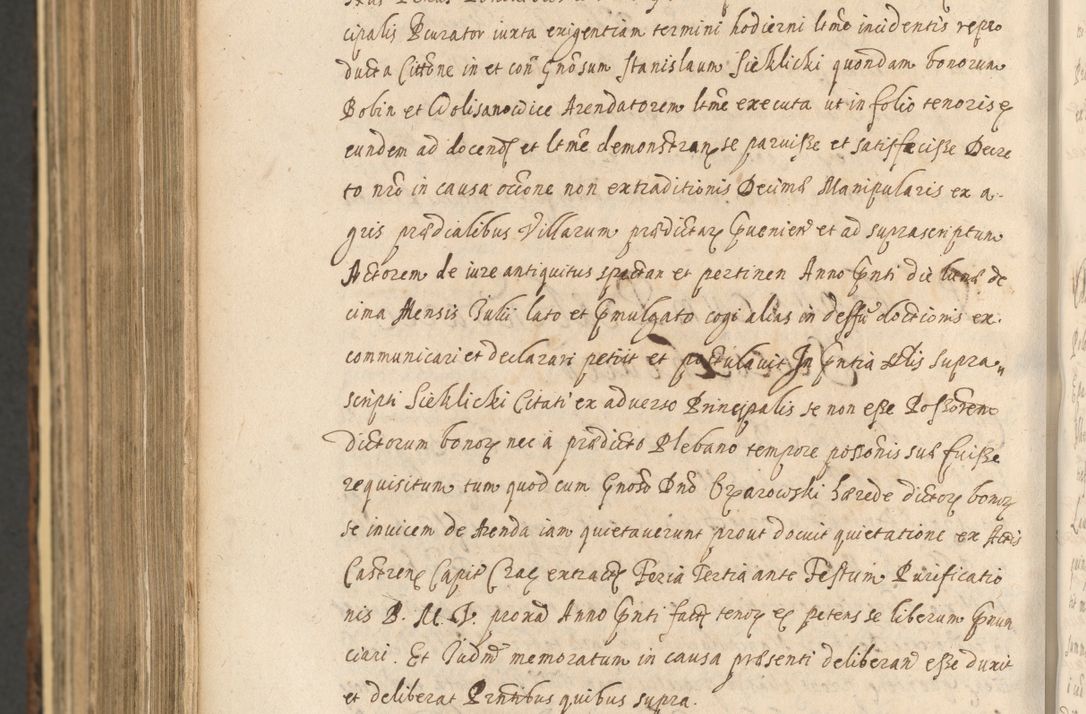 cipalis Pcurator iuxta exigentiam termini hodierni ltme incidentis repro
ducta Cittne in et con Gnosum Stanislaum Sieklicki quondam bonorum
Bobin et Wolisanowice Arendatorem ltme executa ut in folio tenoris
eundem ad docend et ltme demonstran se paruisse et satisfecisse Decre
to nro in causa occone non extraditionis Decimæ Manipularis ex a-
gris prædialibus Villarum prædictar pvenien et ad suprascriptum
Actorem de iure antiquitus spectan et pertinen Anno pnti die lunæ de
cima Mensis Julii lato et pmulgato cogi alias in deffu doctionis ex-
communicari et declarari petiit et postulavit In pntia supra
scripti Sieklicki Citati ex adverso Principalis se non esse Possorem
dictorum bonor nec à prædicto Plebano tempore possonis suæ fuisse
requisitum tum quod cum Gnoso Dno Ozarowski hærede dictor bonor
se invicem de Arenda iam quietaverunt prout docuit quietatione ex Actis
Castren Capit Crac extract Feria Tertia ante Festum Purificatio
nis B. M. V. proxa Anno pnti fact tenor petens se liberum pnun
ciari. Et Judm memoratum in causa præsenti deliberand esse duxit
et deliberat Prntibus quibus supra.